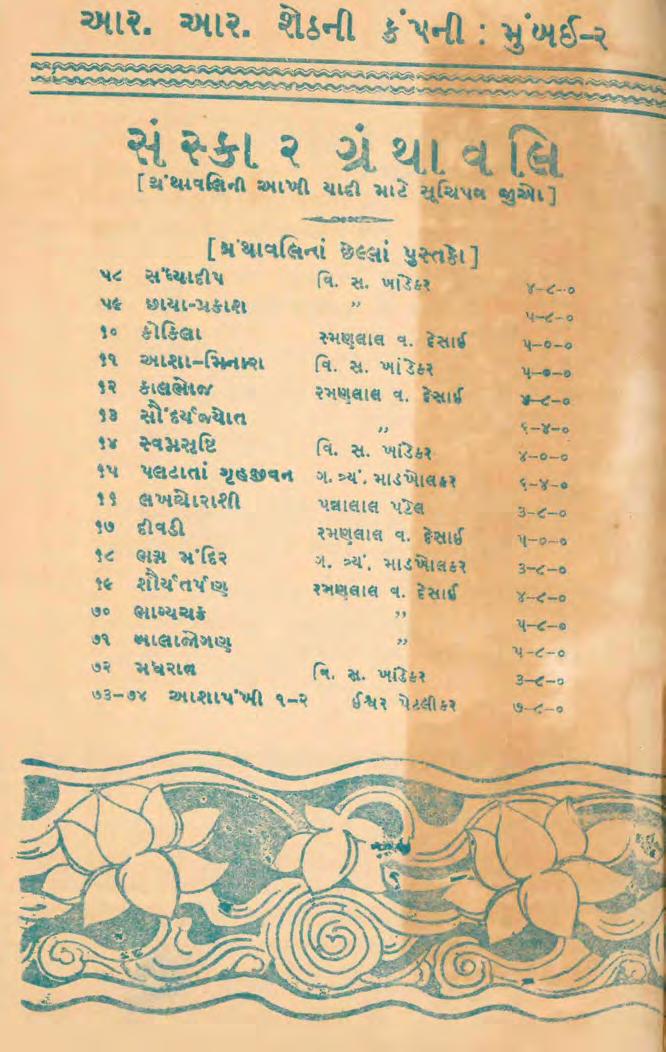 આર. આર. શેઠની કંપની : મુંબઈ-૨
સંસ્કાર ગ્રંથાવલિ
[ ગ્રંથાવલિની આખી યાદી માટે સૂચિપત્ર જુઓ ]
[ ગ્રંથાવલિનાં છેલ્લાં પુસ્તકો ]
૫૮ સંધ્યાદીપ વિ. સ. ખાંડેકર ૪-૮-૦
૫૯ છાયા-પ્રકાશ ” ૫-૮-૦
૬૦ કોકિલા રમણલાલ વ. દેસાઈ ૫-૦-૦
૬૧ આશા-મિનારા વિ. સ. ખાંડેકર ૫-૦-૦
૬૨ કાલભોજ રમણલાલ વ. દેસાઈ ૪-૮-૦
૬૩ સૌંદર્યજ્યોત ” ૬-૪-૦
૬૪ સ્વપ્નસૃષ્ટિ વિ. સ. ખાંડેકર ૪-૦-૦
૬૫ પલટાતાં ગૃહજીવન ગ. ત્ર્યં. માડખોલકર ૬-૪-૦
૬૬ લખચોરાશી પન્નાલાલ પટેલ ૩-૮-૦
૬૭ દીવડી રમણલાલ વ. દેસાઈ ૫-૦-૦
૬૮ ભગ્ન મંદિર ગ. ત્ર્યં. માડખોલકર ૩-૮-૦
૬૯ શૌર્યતર્પણ રમણલાલ વ. દેસાઈ ૪-૮-૦
૭૦ ભાગ્યચક્ર ” ૫-૮-૦
૭૧ બાલાજોગણ ” ૫-૮-૦
૭૨ મધરાત વિ. સ. ખાંડેકર ૩-૮-૦
૭૩-૭૪ આશાપંખી ૧-૨ ઈશ્વર પેટલીકર ૭-૮-૦